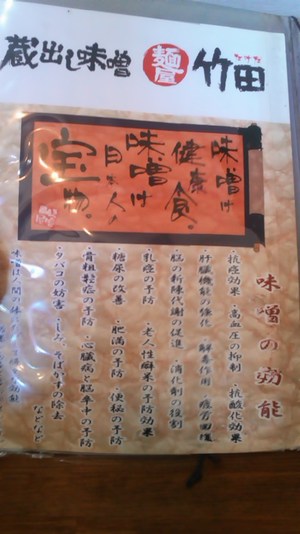 蔵出し味噌 麺屋 竹田
味噌は
健康食。
味噌は
日本人の
宝物。
味噌の効能
・抗癌効果 ・高血圧の抑制 ・抗酸化効果
・肝臓機能の強化 ・解毒作用 ・疲労回復
・脳の新陳代謝の促進 ・消化剤の役割
・乳癌の予防 ・老人性痴呆の予防効果
・糖尿の改善 ・肥満の予防 ・便秘の予防
・骨粗鬆症の予防 ・心臓病・脳卒中の予防
・タバコの妨害 ・しみ、そばかすの除去
などなど
味噌は人間の体